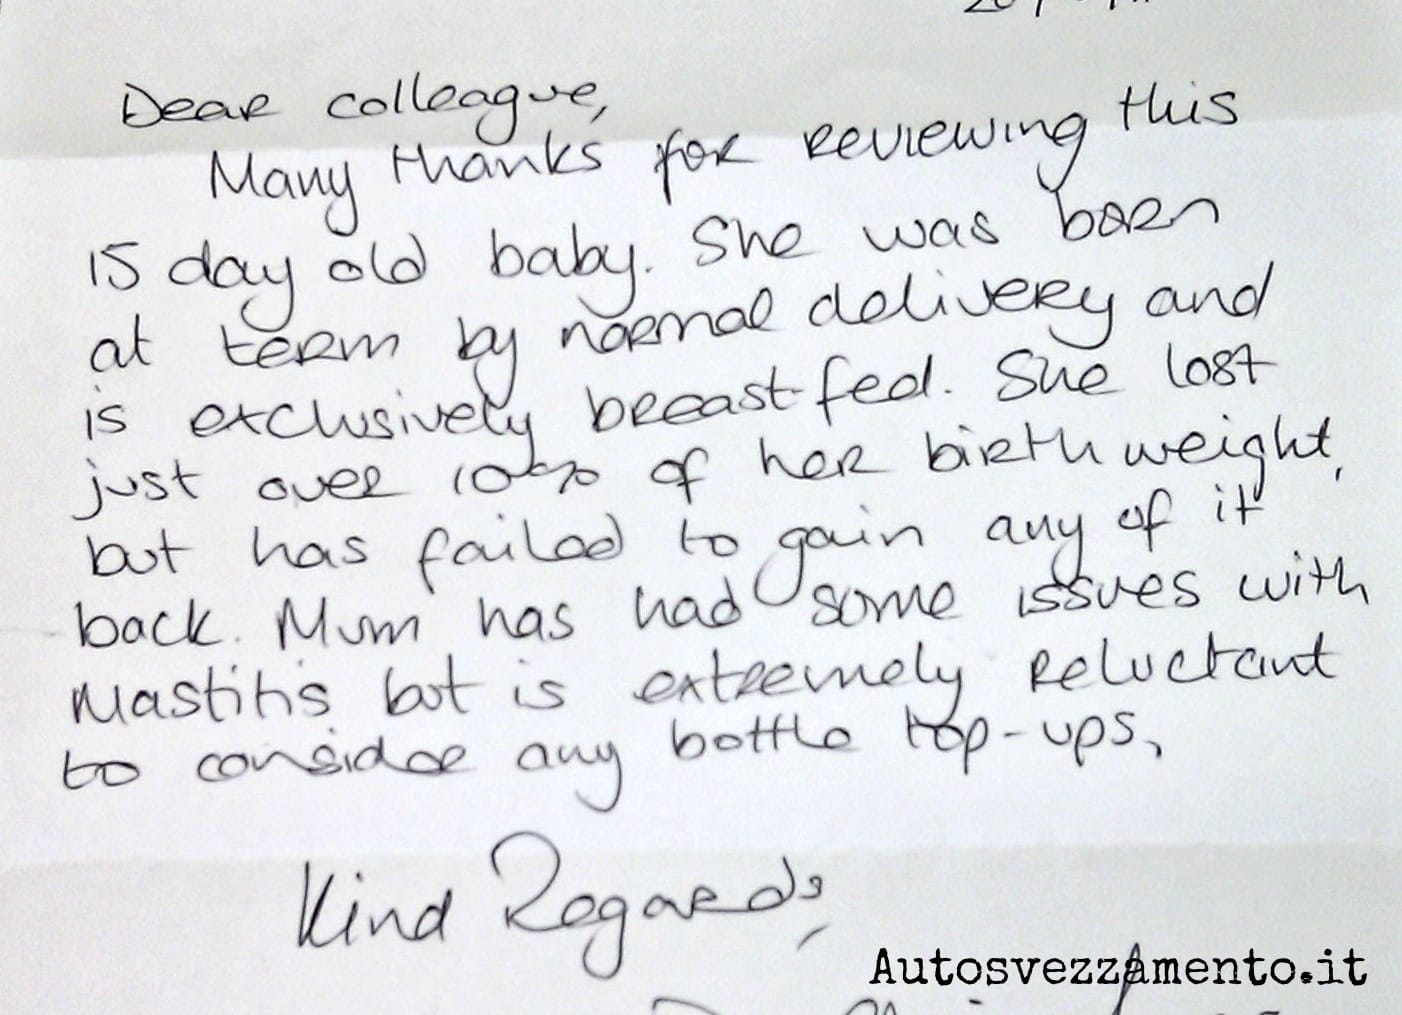 Dear colleague,
Many thanks for reviewing this
15 day old baby. She was born
at term by normal delivery and
is exclusively breastfed. She lost
just over 10% of her birth weight,
but has failed to gain any of it
back. Mum has had some issues with
Mastitis but is extremely reluctant
to consider any bottle top-ups.
Kind Regards,
Autosvezzamento.it